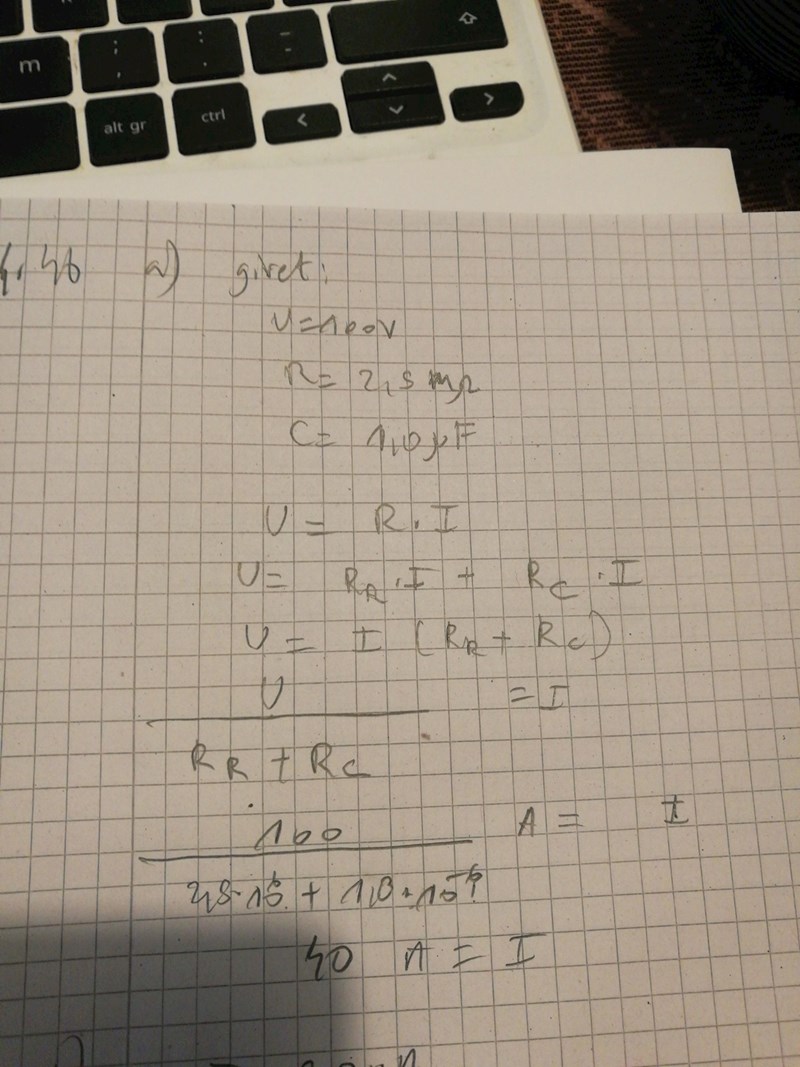 m
; ,
: .
- -
alt gr
ctrl
<
^
v
>
a) givet:
U=100V
R= 2,5 MΩ
C= 1,0 μF
U = R. I
U= R_R . I + R_C . I
U = I (R_R + R_C)
U = I
R_R + R_C
100 A = I
2,5·10⁶ + 1,0·10⁻⁶
40 A = I